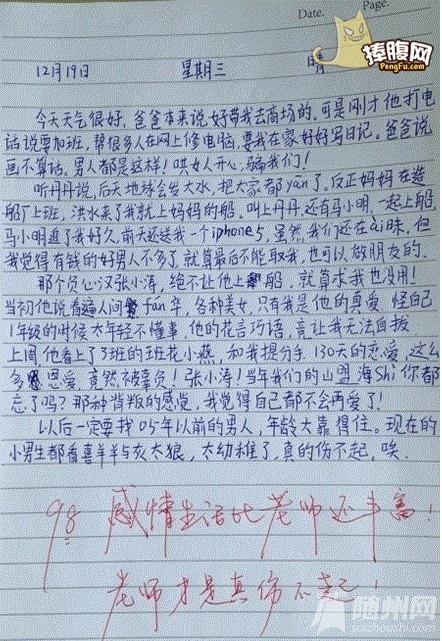 Date.
Page.
捧腹网
PengFu.com
12月19日 星期三 晴
今天天气很好，爸爸本来说好带我去商场的。可是刚才他打电
话说要加班，帮很多人在网上修电脑，要我在家好好写日记。爸爸说
画不算话，男人都是这样！哄女人开心，骗我们！
听丹丹说，后天地球会发大水，把大家都yān了。反正妈妈在造
船厂上班，洪水来了我就上妈妈的船。叫上丹丹，还有马小明，一起上船，
马小明追了我好久，前天还送我一个iphone5，虽然我们还在ai昧，但
我觉得有钱的好男人不多了，就算最后不能取我，也可以做朋友的。
那个负心汉张小涛，绝不让他上船，就算求我也没用！
当初他说看遍人间fán华，各种美女，只有我是他的真爱，怪自己
1年级的时候太年轻不懂事，他的花言巧语，竟让我无法自拔
上周他看上了3班的班花小燕，和我提分手，130天的恋爱，这么
多恩爱，竟然被辜负！张小涛！当年我们的山盟海Shi你都
忘了吗？那种背叛的感觉，我觉得自己都不会再爱了！
以后一定要找05年以前的男人，年龄大靠得住。现在的
小男生都看喜羊羊与灰太狼，太幼稚了，真的伤不起，唉.
98 感情生活比老师还丰富！
老师才是真伤不起！
随州网
suizhoushi.com